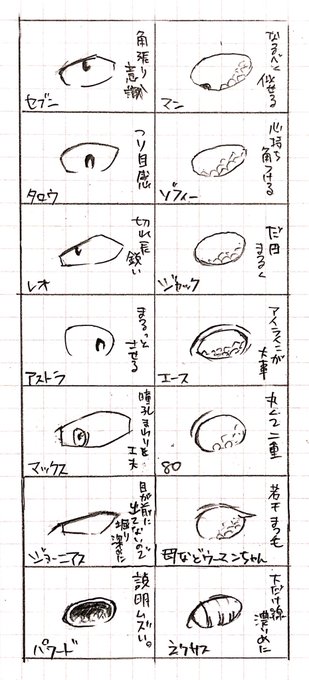 角張り
意識
セブン
なるべく
似せる
マン
つり目感
タロウ
心持ち
角つける
ゾフィー
切れ長
鋭い
レオ
だ円
まるく
ジャック
まるっと
させる
アストラ
アイラインが
大事
エース
瞳孔まわりを
工夫
マックス
丸くて二重
80
目が前に
出てないので
堀り深めに
ジョーニアス
若干まつ毛
母などウーマンちゃん
説明ムズい。
パワード
下だけ線
濃いめに
ネクサス